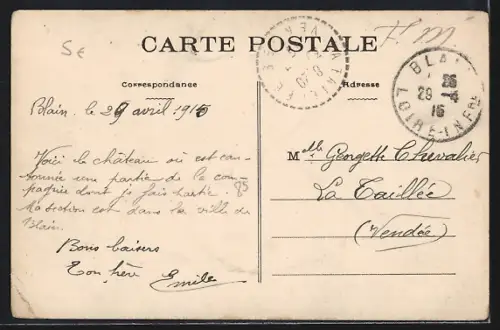 5€
F. M.
CARTE POSTALE
Correspondance
Adresse
BLAIN
29 -4
15
LOIRE-INFRE
Blain, le 29 avril 1915
Voici le château où est can-
tonnée une partie de la com-
pagnie dont je fais partie. 85
Ma section est dans la ville de
Blain.
Bons baisers
Ton frère Emile
Melle Georgette Chevalier
La Taillée
(Vendée)